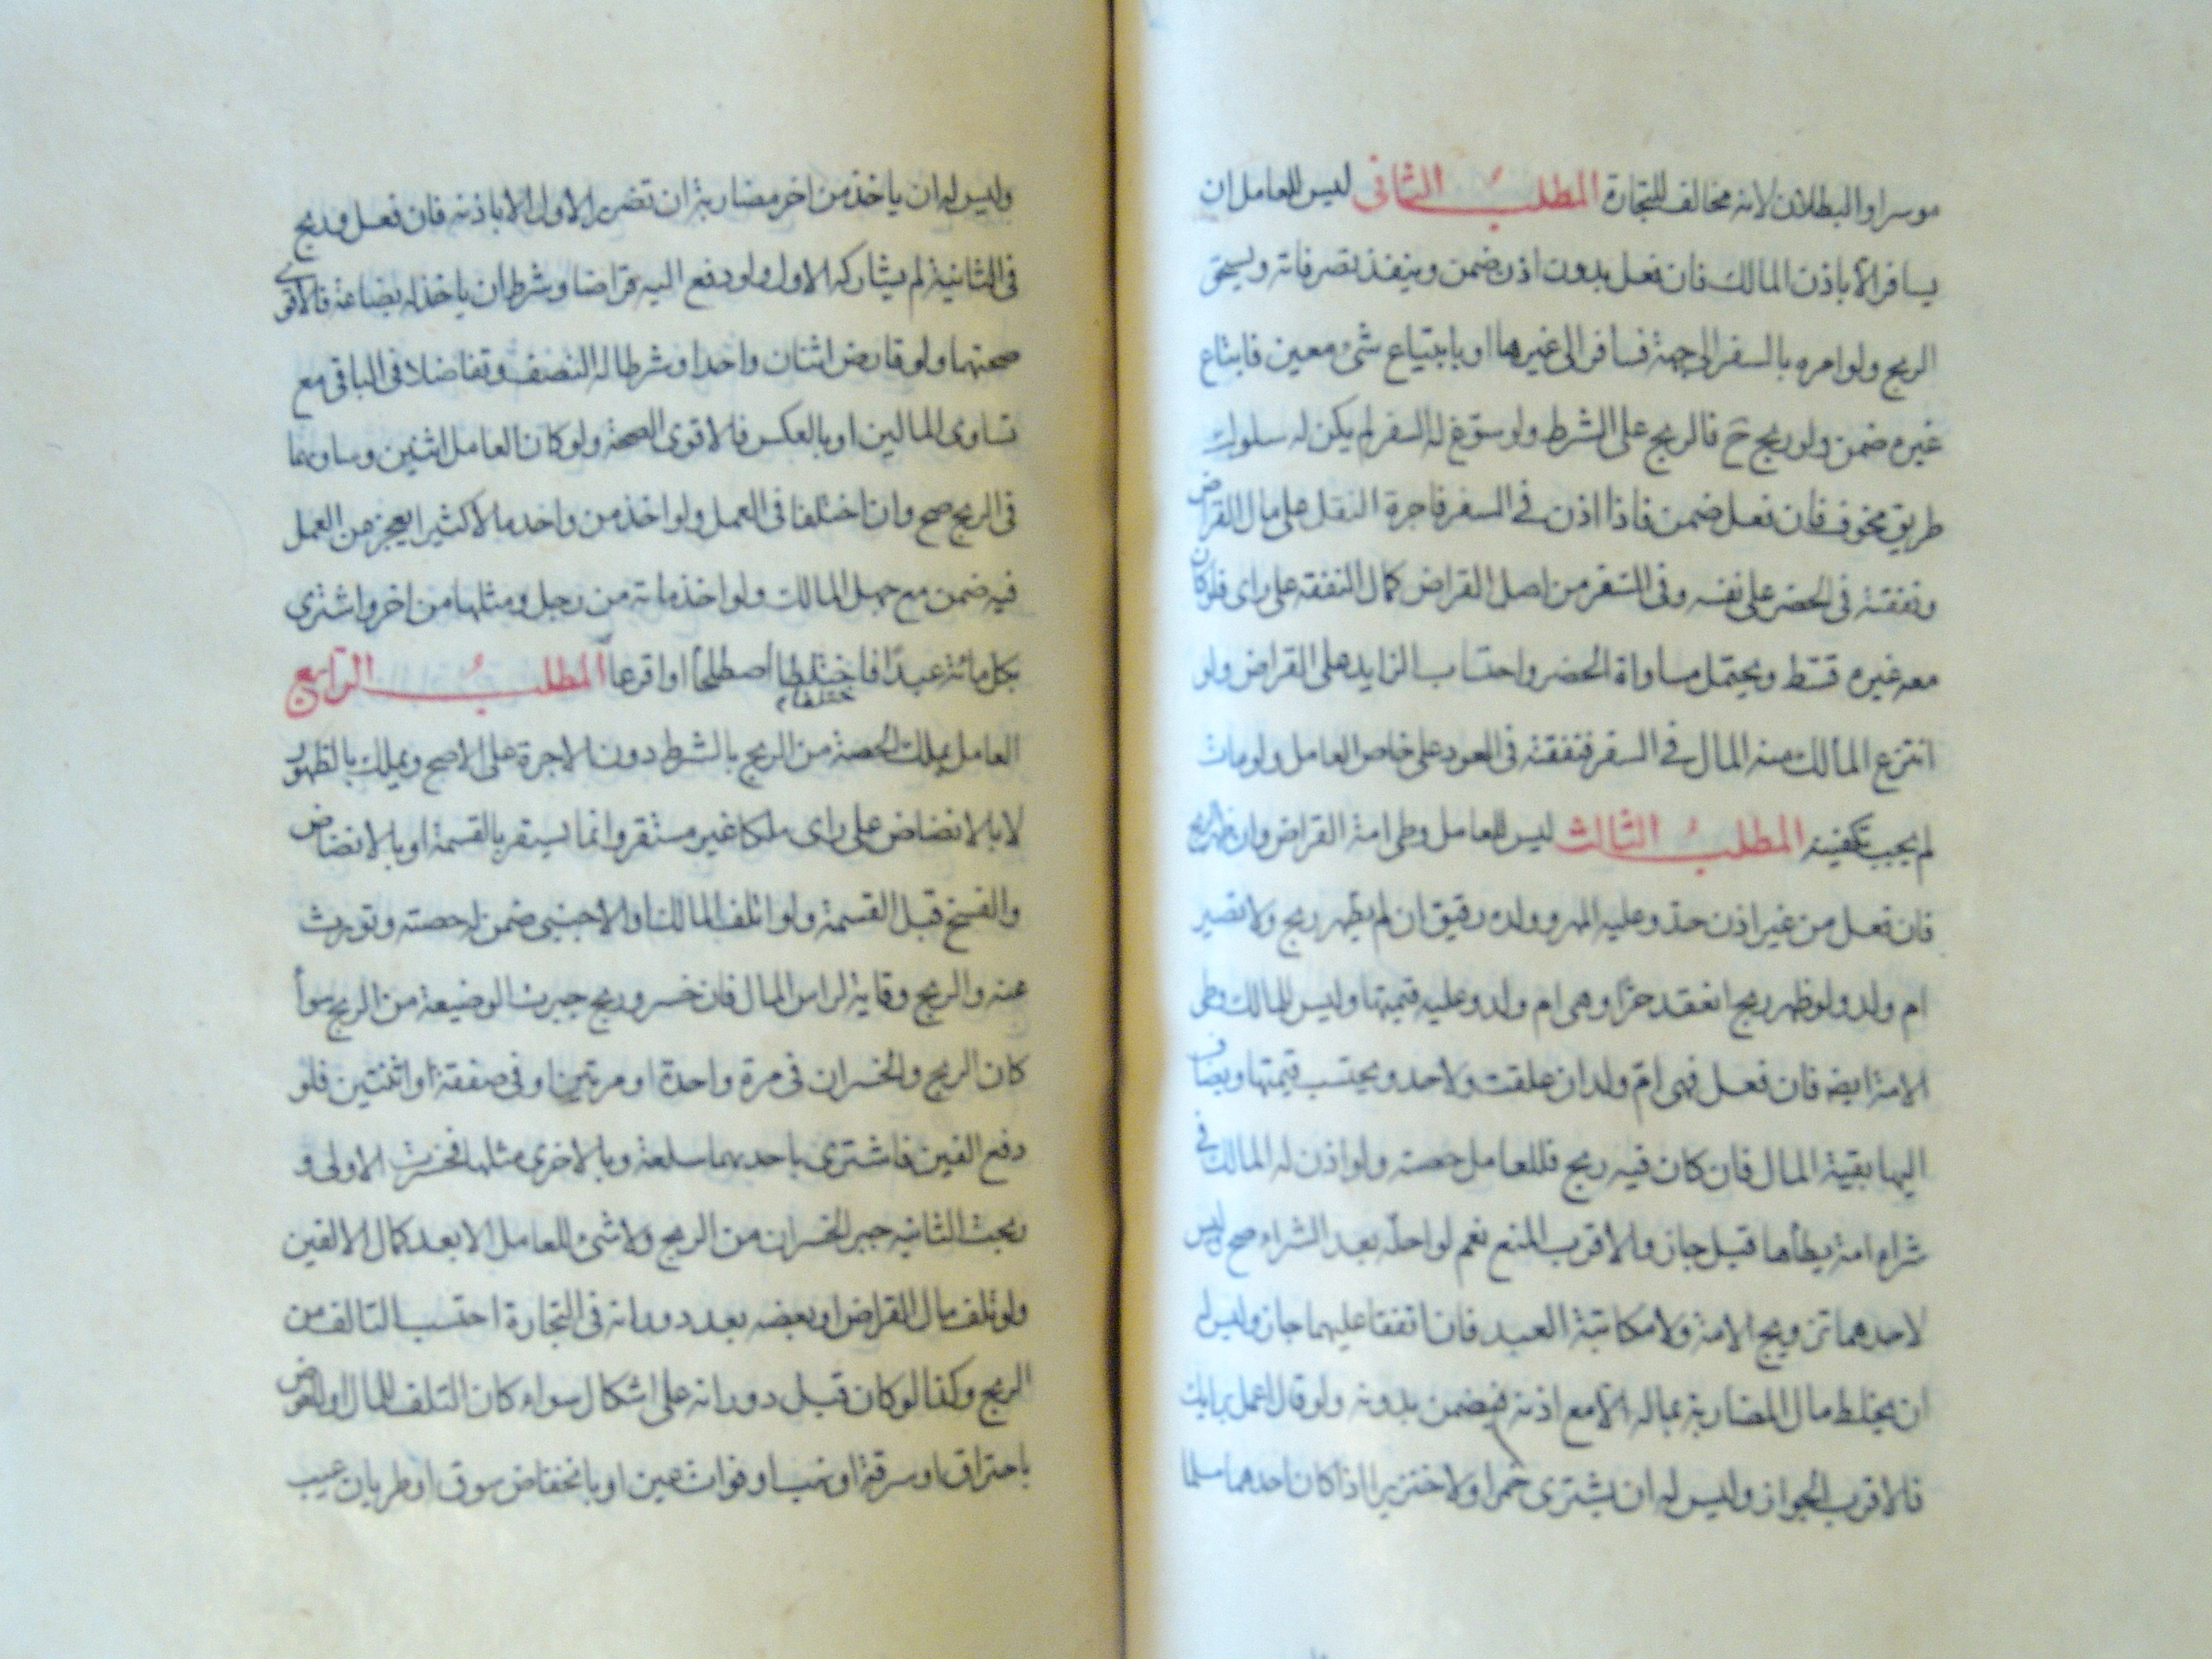 موسرا والبطلان لانه مخالف للتجارة المطلب الثانى ليس للعامل ان
يسافر الا باذن المالك فان فعل بدون اذن ضمن وينفذ تصرفاته ويستحق
الربح ولو امره بالسفر الى جهة فسافر الى غيرها او بابتياع شئ معين فابتاع
غيره ضمن ولو ربح ح فالربح على الشرط ولو سوّغ له السفر لم يكن له سلوك
طريق مخوف فان فعل ضمن فاذا اذن فى السفر فاجرة النقل على مال القراض
ونفقته فى الحضر على نفسه وفى السفر من اصل القراض كمال النفقة على راى فلو كان
معه غيره قسّط ويحتمل مساواة الحضر واحتساب الزايد على القراض ولو
انتزع المالك منه المال فى السفر فنفقته فى العود على خاص العامل ولو مات
لم يجب تكفينه المطلب الثالث ليس للعامل وطى امة القراض وان ظهر ربح
فان فعل من غير اذن حدّ وعليه المهر وولده رقيق ان لم يظهر ربح ولا تصير
ام ولد ولو ظهر ربح انعقد حرّا وهى ام ولد وعليه قيمتها وليس للمالك وطى
الامة ايضه فان فعل فهى امّ ولد ان علقت ولا حد ويحتسب قيمتها ويضاف
اليها بقية المال فان كان فيه ربح فللعامل حصته ولو اذن له المالك فى
شراء امة يطأها قيل جاز والاقرب المنع نعم لو احلّه بعد الشراء صح وليس
لاحدهما تزويج الامة ولا مكاتبة العبد فان اتفقا عليهما جاز وليس له
ان يخلط مال المضاربة بماله الا مع اذنه فيضمن بدونه ولو قال اعمل برايك
فالاقرب الجواز وليس له ان يشترى خمرا ولا خنزيرا اذا كان احدهما مسلما
وليس له ان ياخذ من اخر مضاربة ان تضرر الاول الا باذنه فان فعل وربح
فى الثانية لم يشاركه الاول ولو دفع اليه قراضا وشرط ان ياخذ له بضاعة فالاقوى
صحتهما ولو قارض اثنان واحدا وشرطا له النصف وتفاضلا فى الباقى مع
تساوى المالين او بالعكس فالاقوى الصحة ولو كان العامل اثنين وساويهما
فى الربح صح وان اختلفا فى العمل ولو اخذ من واحد مالا كثيرا يعجز عن العمل
فيه ضمن مع جهل المالك ولو اخذ مائة من رجل ومثلها من اخر واشترى
بكل مائة عبدًا فاختلطا اصطلحا او اقرعا المطلب الرابع
العامل يملك الحصة من الربح بالشرط دون الاجرة على الاصح ويملك بالظهور
لا بالانضاض على راى ملكا غير مستقر وانما يستقر بالقسمة او بالانضاض
والفسخ قبل القسمة ولو اتلف المالك او الاجنبى ضمن له حصته وتورث
عنه والربح وقاية لراس المال فان خسر وربح جبرت الوضيعة من الربح سواء
كان الربح والخسران فى مرة واحدة او مرتين او فى صفقة او اثنتين فلو
دفع الفين فاشترى باحديهما سلعة وبالاخرى مثلها فخسرت الاولى و
ربحت الثانيه جبر الخسران من الربح ولا شئ للعامل الا بعد كمال الالفين
ولو تلف مال القراض او بعضه بعد دورانه فى التجارة احتسب التالف من
الربح وكذا لو كان قبل دورانه على اشكال سواء كان التلف للمال او للعوض
باحتراق او سرقة او نهب او فوات عين او بانخفاض سوق او طريان عيب